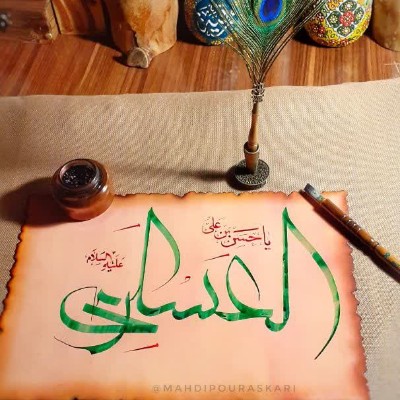 یا حسن بن علی
العسکری
علیه السلام
@MAHDIPOURASKARI